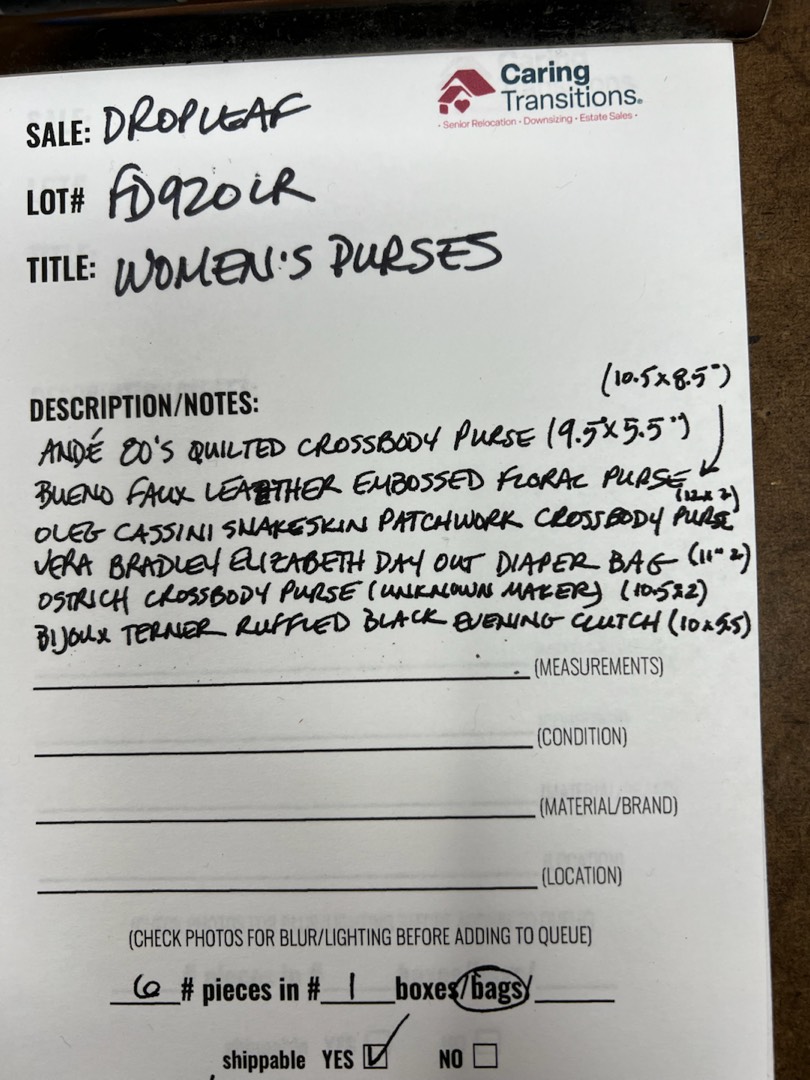 Caring
Transitions®
• Senior Relocation • Downsizing • Estate Sales •
SALE: DROPLEAF
LOT# FD920LR
TITLE: WOMEN'S PURSES
(10.5x8.5")
DESCRIPTION/NOTES:
ANDÉ 80'S QUILTED CROSSBODY PURSE (9.5"x5.5")
BUENO FAUX LEATHER EMBOSSED FLORAL PURSE
(12x7)
OLEG CASSINI SNAKESKIN PATCHWORK CROSSBODY PURSE
VERA BRADLEY ELIZABETH DAY OUT DIAPER BAG (11"
OSTRICH CROSSBODY PURSE (UNKNOWN MAKER)
BIJOUX TERNER RUFFLED BLACK EVENING CLUTCH (10x5.5)
(MEASUREMENTS)
(CONDITION)
(MATERIAL/BRAND)
(LOCATION)
(CHECK PHOTOS FOR BLUR/LIGHTING BEFORE ADDING TO QUEUE)
6 # pieces in # 1 boxes/bags/
shippable YES ☑ NO ☐